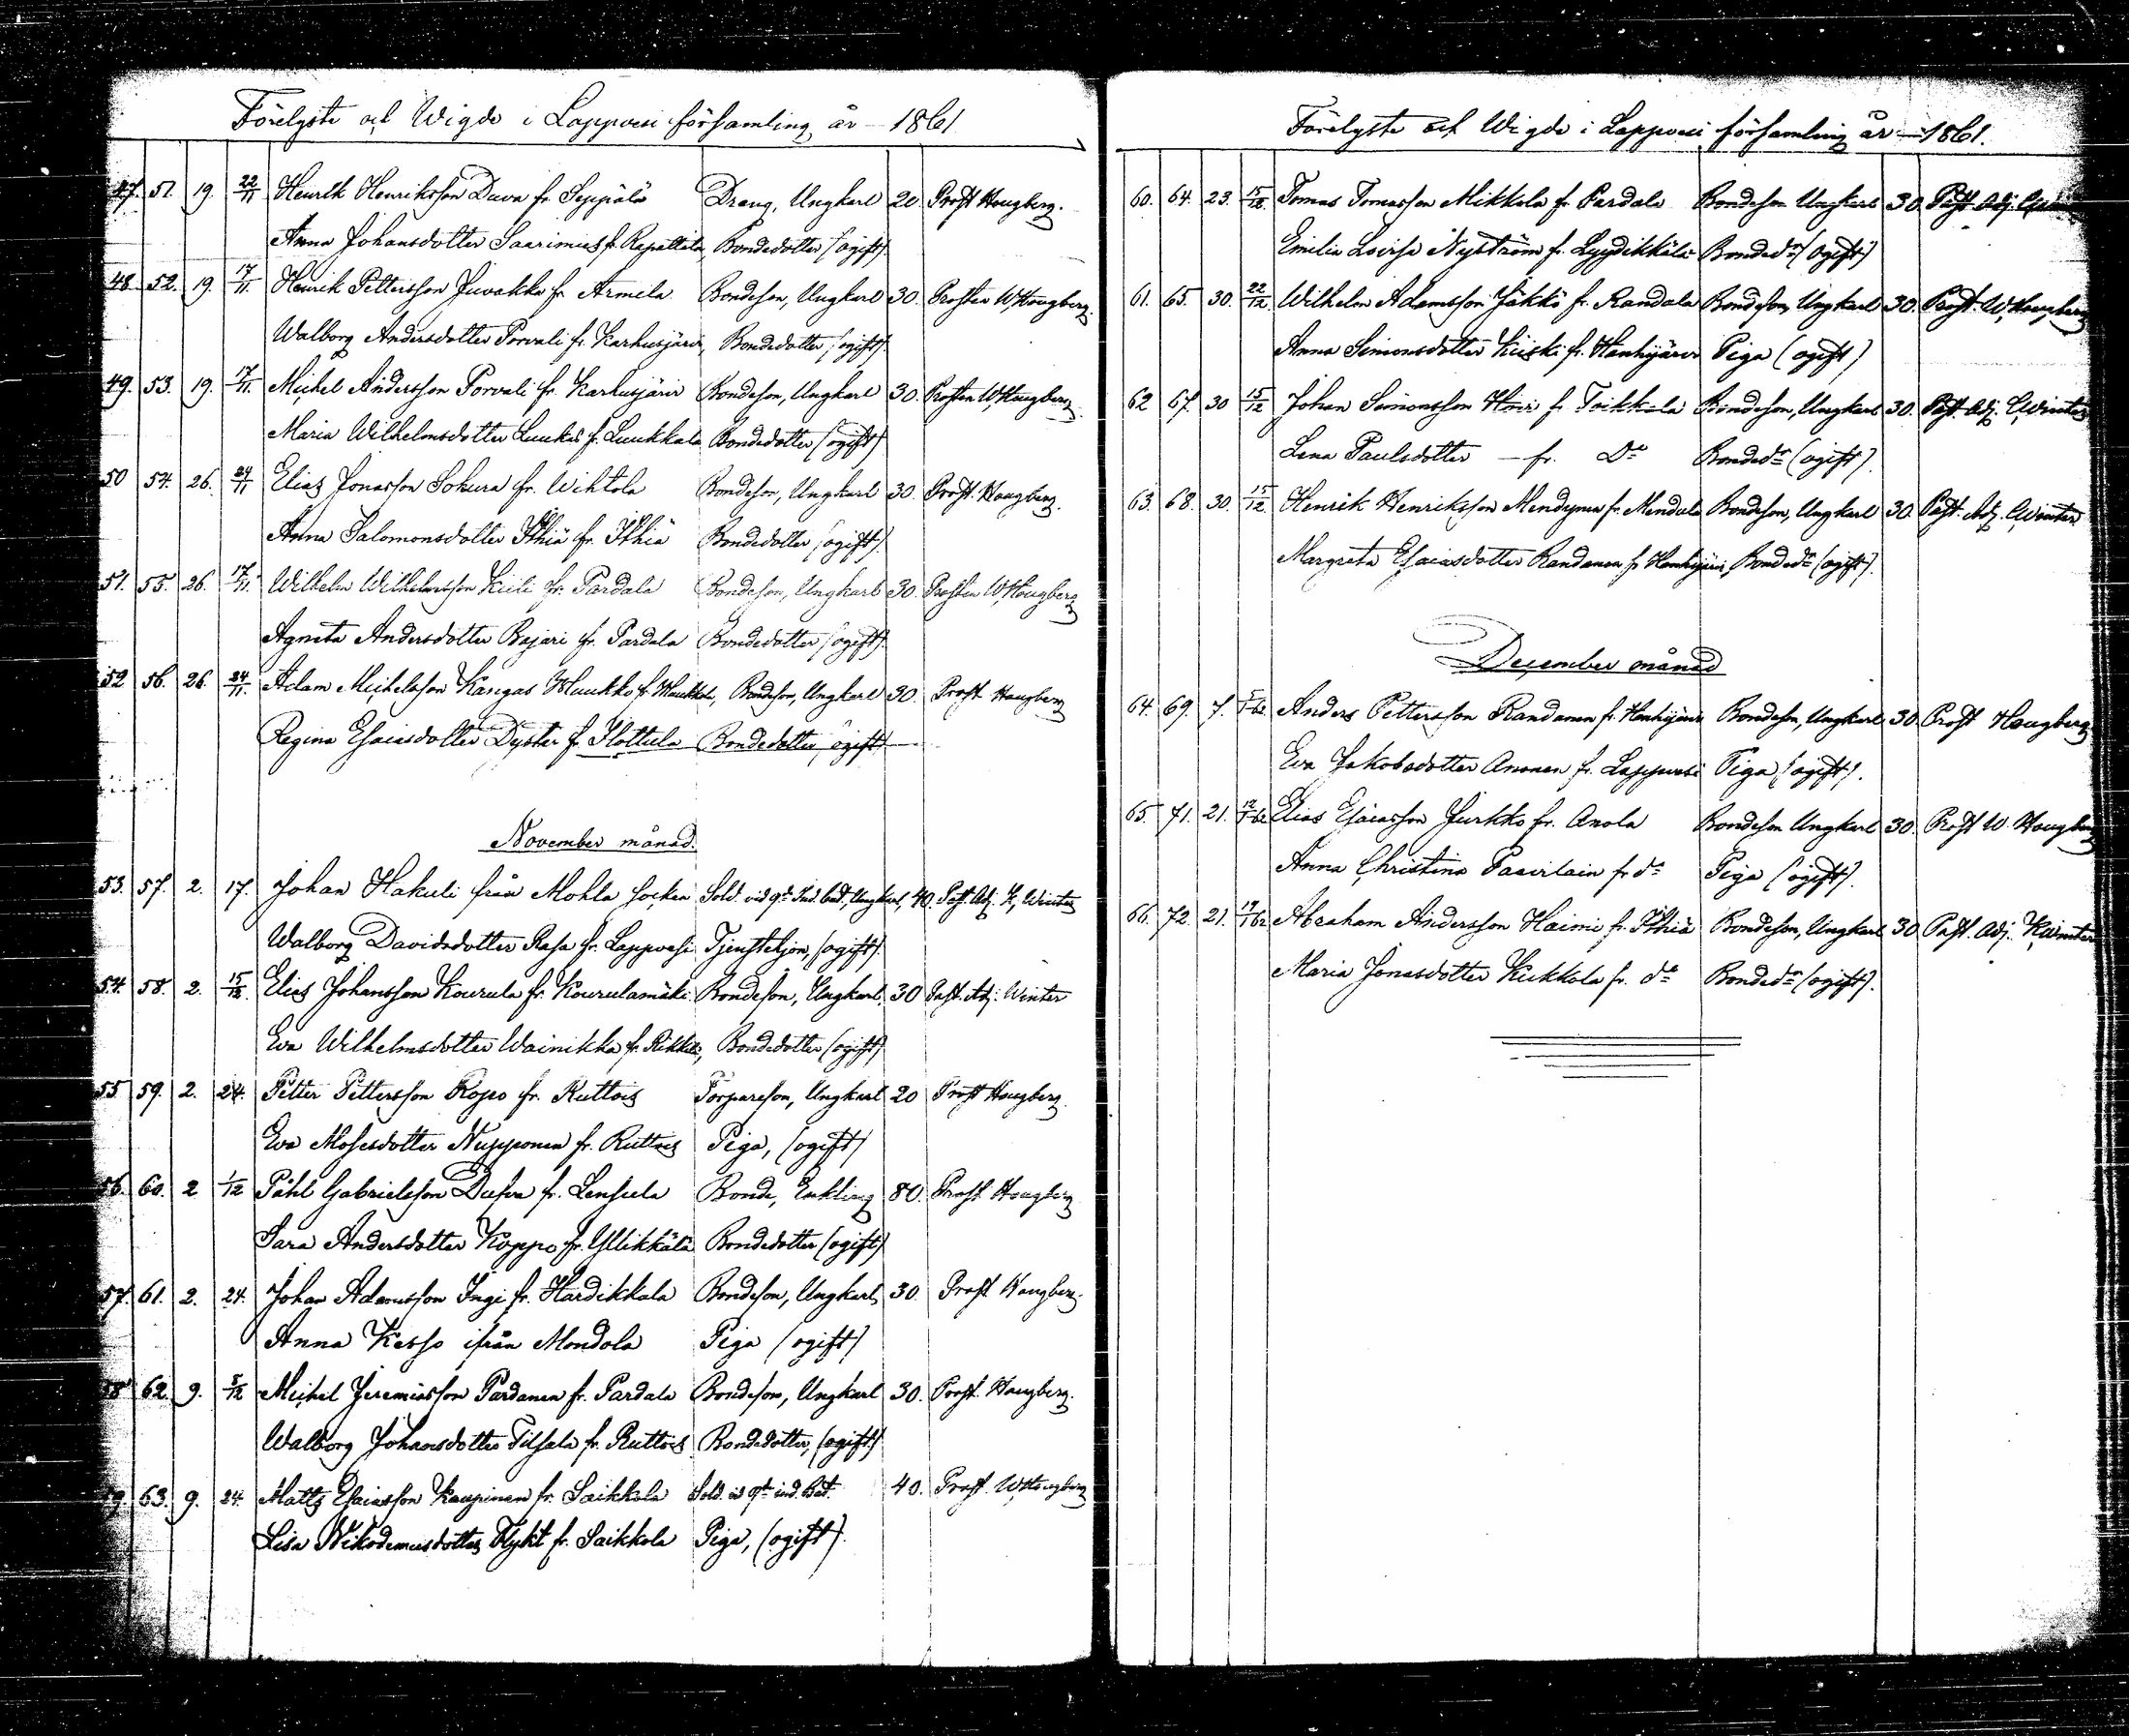 Förelyste och Wigde i Lappvesi församling år – 1861
47. 51. 19. 22/11 Henrik Henriksson Duva fr. Seppälä Dräng, Ungkarl 20 Prost Hougberg.
Anna Johansdotter Saarimies fr. Rapattila, Bondedotter (ogift).
48. 52. 19. 17/11. Henrik Pettersson Juvakka fr. Armila Bondeson, Ungkarl 30. Prosten W, Hougberg.
Walborg Andersdotter Porvali fr. Karhusjärvi, Bondedotter (ogift).
49. 53. 19. 17/11. Michel Andersson Porvali fr. Karhusjärvi Bondeson, Ungkarl 30. Prosten W, Hougberg.
Maria Wilhelmsdotter Luukas fr. Luukkala Bondedotter (ogift)
50 54. 26. 24/11 Elias Jonasson Sokura fr. Wihtola Bondeson, Ungkarl 30. Prost. Hougberg.
Anna Salomonsdotter Ithiä fr. Ithiä Bondedotter (ogift).
51. 55. 26. 17/11. Wilhelm Wilhelmsson Kiili fr. Pardala Bondeson, Ungkarl 30. Prosten W, Hougberg
Agneta Andersdotter Bajari fr. Pardala Bondedotter (ogift).
52 56. 26. 24/11. Adam Michelsson Kangas Muukko fr. Muukkola, Bondeson, Ungkarl 30. Prost Hougberg
Regina Esaiasdotter Dyster fr. Hottula Bondedotter, ogift
November månad.
53. 57. 2. 17. Johan Hakuli från Mohla socken Sold. vid 9de Ind. bat, Ungkarl, 40. Past. Adj. K, Winter
Walborg Davidsdotter Rasa fr. Lappvesi Tjenstehjon, (ogift).
54. 58. 2. 15/12. Elias Johansson Kourula fr. Kourulamäki Bondeson, Ungkarl. 30 Past. Adj. Winter
Eva Wilhelmsdotter Wainikka fr. Rikkilä, Bondedotter (ogift)
55 59. 2. 24. Petter Pettersson Ropo fr. Ruttois Torpareson, Ungkarl 20 Prost Hougberg.
Eva Mosesdotter Nupponen fr. Ruttois Piga, (ogift)
56. 60. 2 1/12 Påhl Gabrielsson Dufva fr. Lensula Bonde, Enkling 80. Prost Hougberg
Sara Andersdotter Koppo fr. Yllikkälä Bondedotter (ogift)
57. 61. 2. 24. Johan Adamsson Ingi fr. Hardikkala Bondeson, Ungkarl, 30. Prost Hougberg.
Anna Kesso ifrån Mondola Piga (ogift)
58 62. 9. 8/12 Michel Jeremiasson Pardanen fr. Pardala Bondeson, Ungkarl 30. Prost. Hougberg.
Walborg Johansdotter Tilsala fr. Ruttois Bondedotter, (ogift)
59. 63. 9. 24. Matts Esaiasson Kaupinen fr. Saikkola Sold. vid 9de ind. Bat. 40. Prost. W, Hougberg
Lisa Nikodemusdotter Flykt fr. Saikkola Piga, (ogift).
Förelyste och Wigde i Lappvesi församling år – 1861.
60. 64. 23. 15/12. Tomas Tomasson Mikkola fr. Pardala Bondeson Ungkarl 30. Past. Adj.
Emilia Lovisa Nyström fr. Lyydikkälä Bondedr (ogift)
61. 65. 30. 22/12. Wilhelm Adamsson Jäkkö fr. Randala Bondeson, Ungkarl 30. Prost. W, Hougberg
Anna Simonsdotter Kiiski fr. Hanhijärvi Piga (ogift)
62 67. 30 15/12 Johan Simonsson Hovi fr. Toikkala Bondeson, Ungkarl 30. Past. Adj. Winter
Lena Paulsdotter – fr. Do Bondedr (ogift).
63. 68. 30. 15/12 Henrik Henriksson Mendynen fr. Mendola Bondeson, Ungkarl 30. Past. Adj. Winter
Margreta Esaiasdotter Randanen fr. Hanhijärvi, Bondedr (ogift).
December månad
64. 69. 7. 5/1 62 Anders Pettersson Randanen fr. Hanhijärvi Bondeson, Ungkarl 30 Prost Hougberg
Eva Jakobsdotter Anonen fr. Lappvesi Piga (ogift).
65. 71. 21. 12/1 62 Elias Esaiasson Jurkko fr. Anola Bondeson Ungkarl 30. Prost W. Hougberg
Anna Christina Paavilain fr. do Piga (ogift).
66. 72. 21. 19/1 62 Abraham Andersson Haimi fr. Ithiä Bondeson, Ungkarl 30 Past. Adj. K, Winter
Maria Jonasdotter Kukkola fr. do Bondedr (ogift).